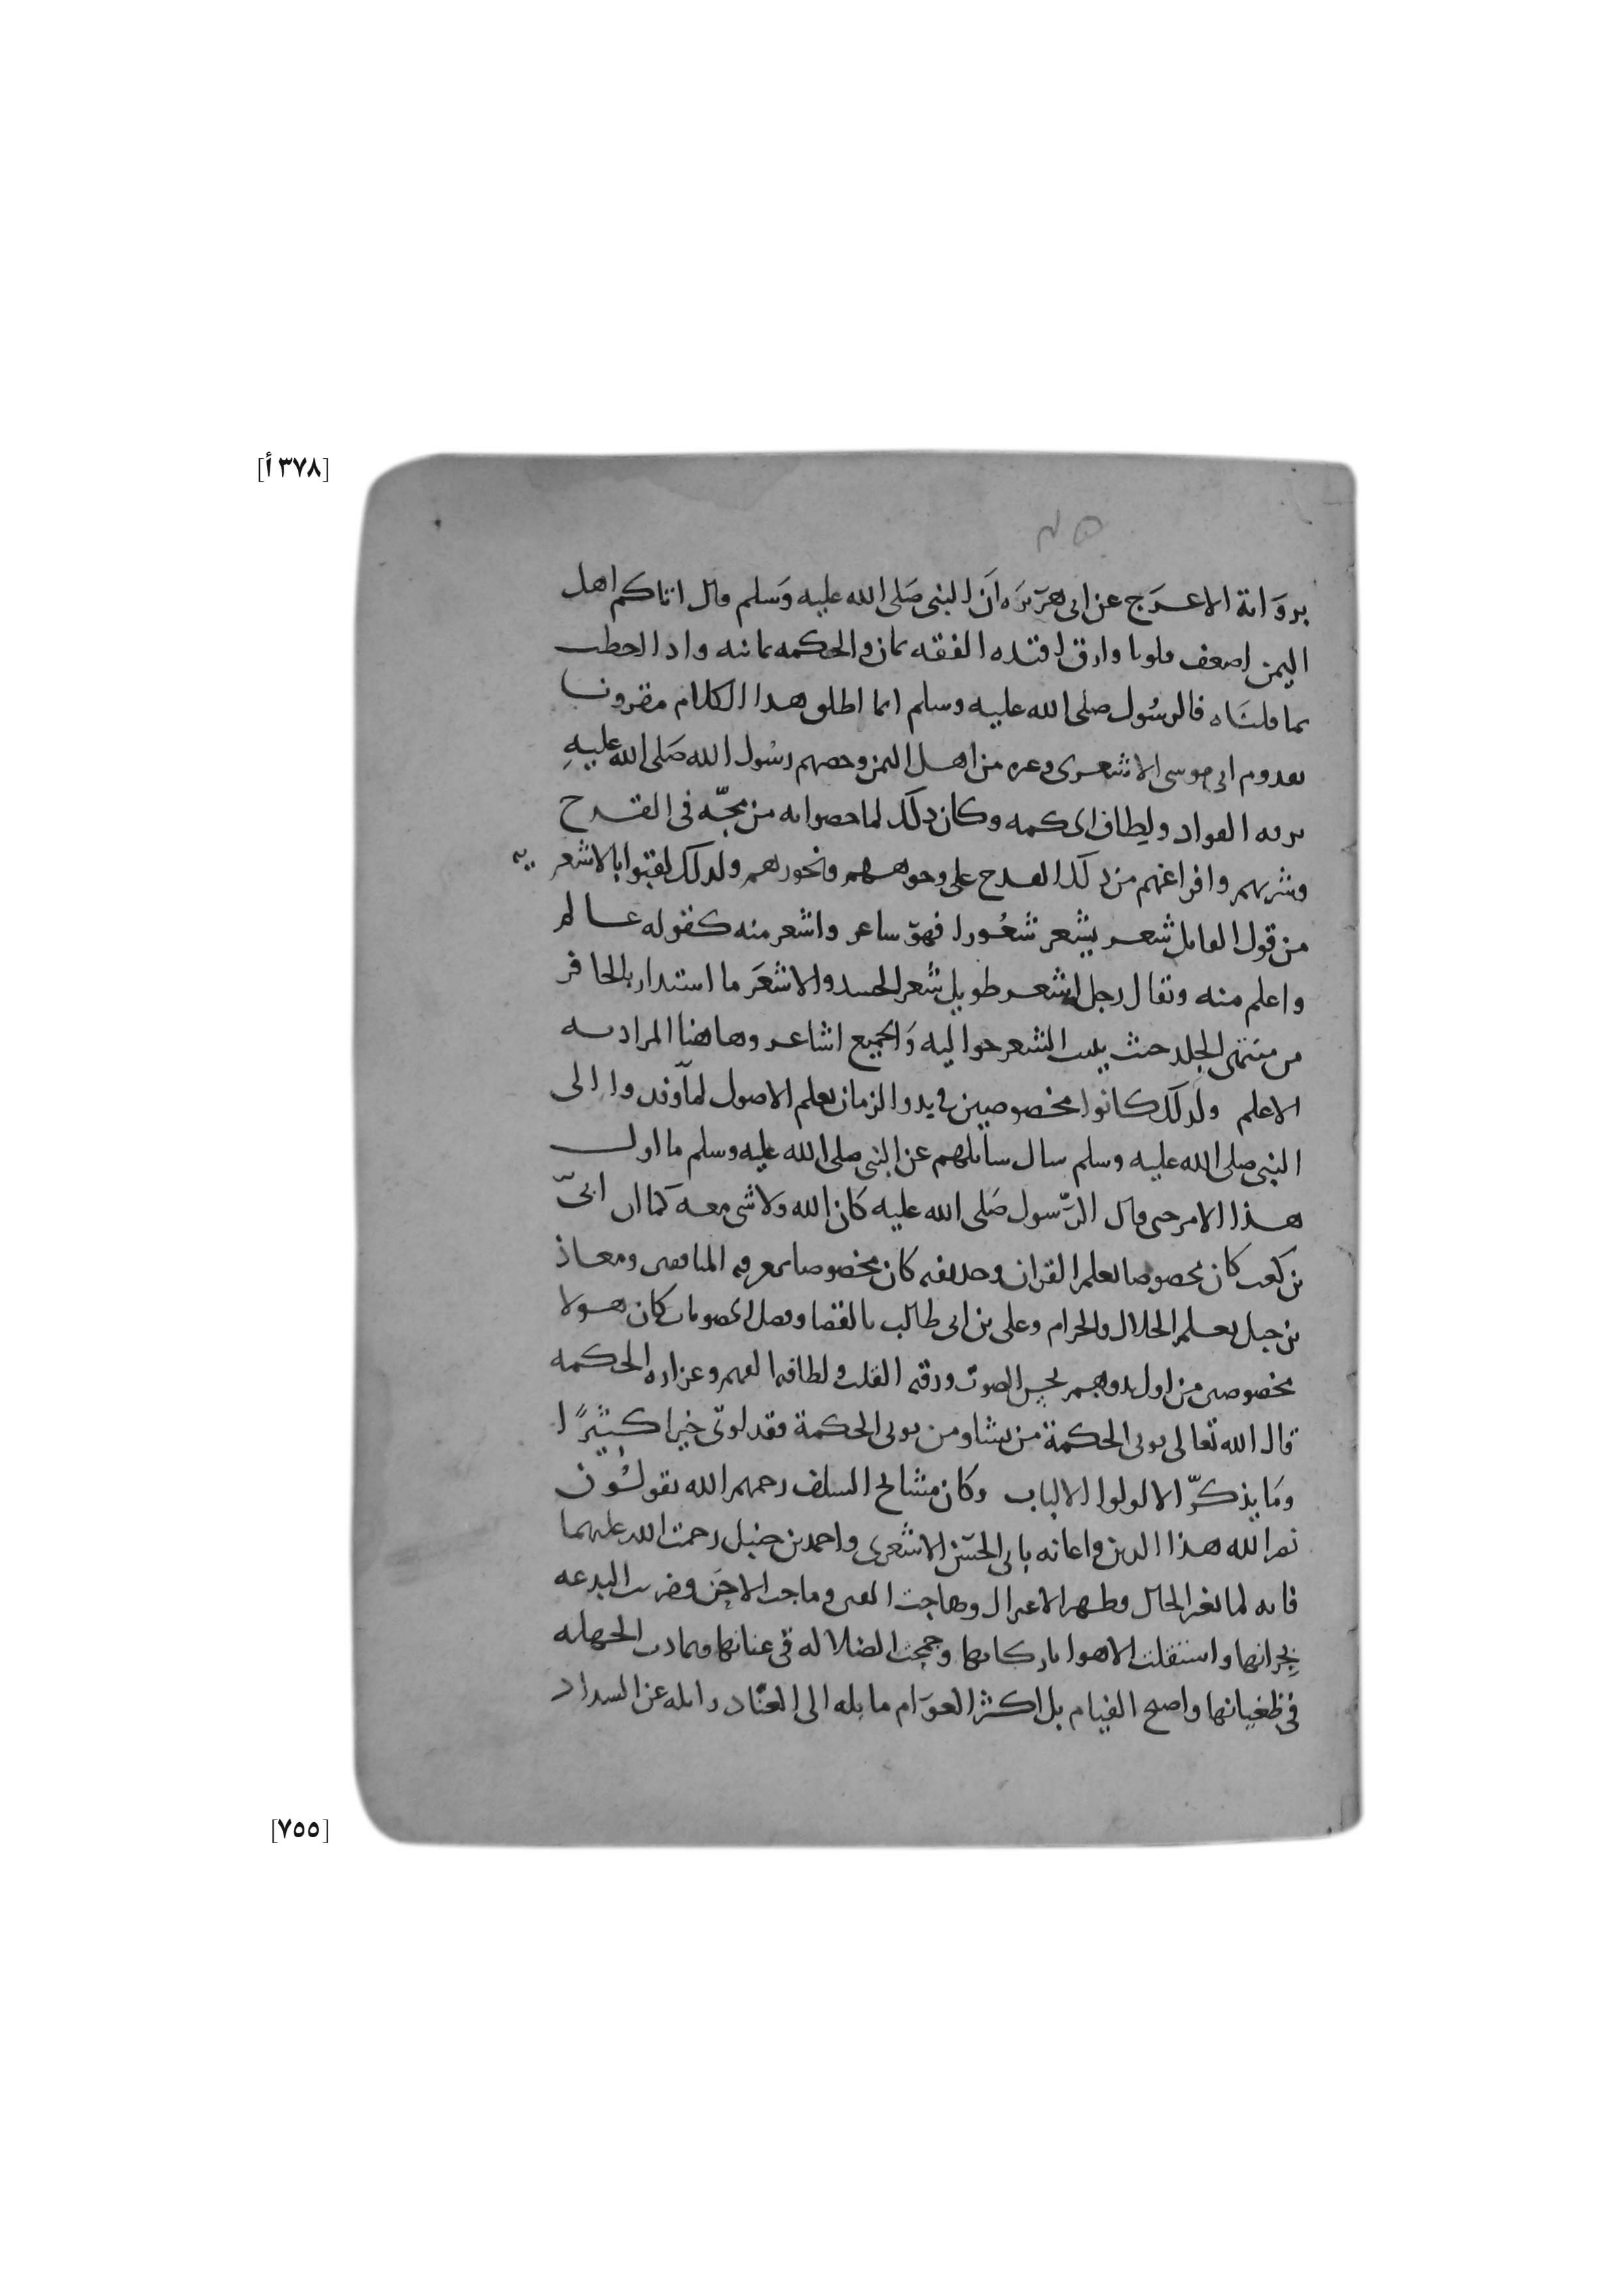 [٣٧٨ أ]
برواية الاعرج عن ابى هريره ان النبى صَلى الله عليه وَسلم قال اتاكم اهل
اليمن اضعف قلوبا وارق افئده الفقه يمان والحكمه يمانيه واد الحطب
بما قلناه فالرسُول صلى الله عليه وسلم انما اطلق هذا الكلام مقرونا
بقدوم ابى موسى الاشعرى وغيره من اهل اليمن وخصهم رسُول الله صَلى الله عليهِ
برقه الفواد ولطاف الحكمه وكان ذلك لما خصوا به من مجّه فى القدح
وشربهم وافراغهم من ذلك القدح على وجوههم ونحورهم ولذلك لقبوا بالاشعريه
من قول القايل شعر يشعر شعُورا فهوَ شاعر واشعر منه كقوله عالم
واعلم منه ويقال رجل اشعر طويل شعر الجسد والاشعَر ما استدار بالحافر
من منتهى الجلد حيث ينبت الشعر حواليه وَالجميع اشاعر وها هنا المراد به
الاعلم ولذلك كانوا مخصوصين فى بدو الزمان بعلم الاصول لما وفدوا الى
النبى صلى الله عليه وسلم سال سائلهم عن النبى صلى الله عليه وسلم ما اول
هذا الامر حتى قال الرّسول صَلى الله عليه كان الله ولا شى معه كما ان ابىّ
بن كعب كان مخصوصا بعلم القران وحذيفه كان مخصوصا بمعرفه المنافقين ومعاذ
بن جبل بعلم الحلال والحرام وعلى بن ابى طالب بالقضا وفصل الخصومات كان هولا
مخصوصين من اول بدوهم بحسن الصوت ورقه القلب ولطافه الفهم وغزاره الحكمه
قال الله تعالى يوتى الحكمة من يشا ومن يوتى الحكمة فقد اوتى خيرا كثيرًا
ومَا يذكرّ الا اولوا الالباب وكان مشائخ السلف رحمهم الله يقولُون
نصر الله هذا الدين واعانه بابى الحسَن الاشعرى واحمد بن حنبل رحمت الله عليهما
فانه لما تغير الحال وظهر الاعتزال وهاجت الفتن وماجت الاحَن وضربت البدعه
بِجرانها واستقلت الاهوا باركانها وجمحت الضلاله فى عنانها وتمادت الجهله
فى طغيانها واصبح القيام بل اكثر العوَام مايله الى العنَاد زايله عن السداد
[٧٥٥]